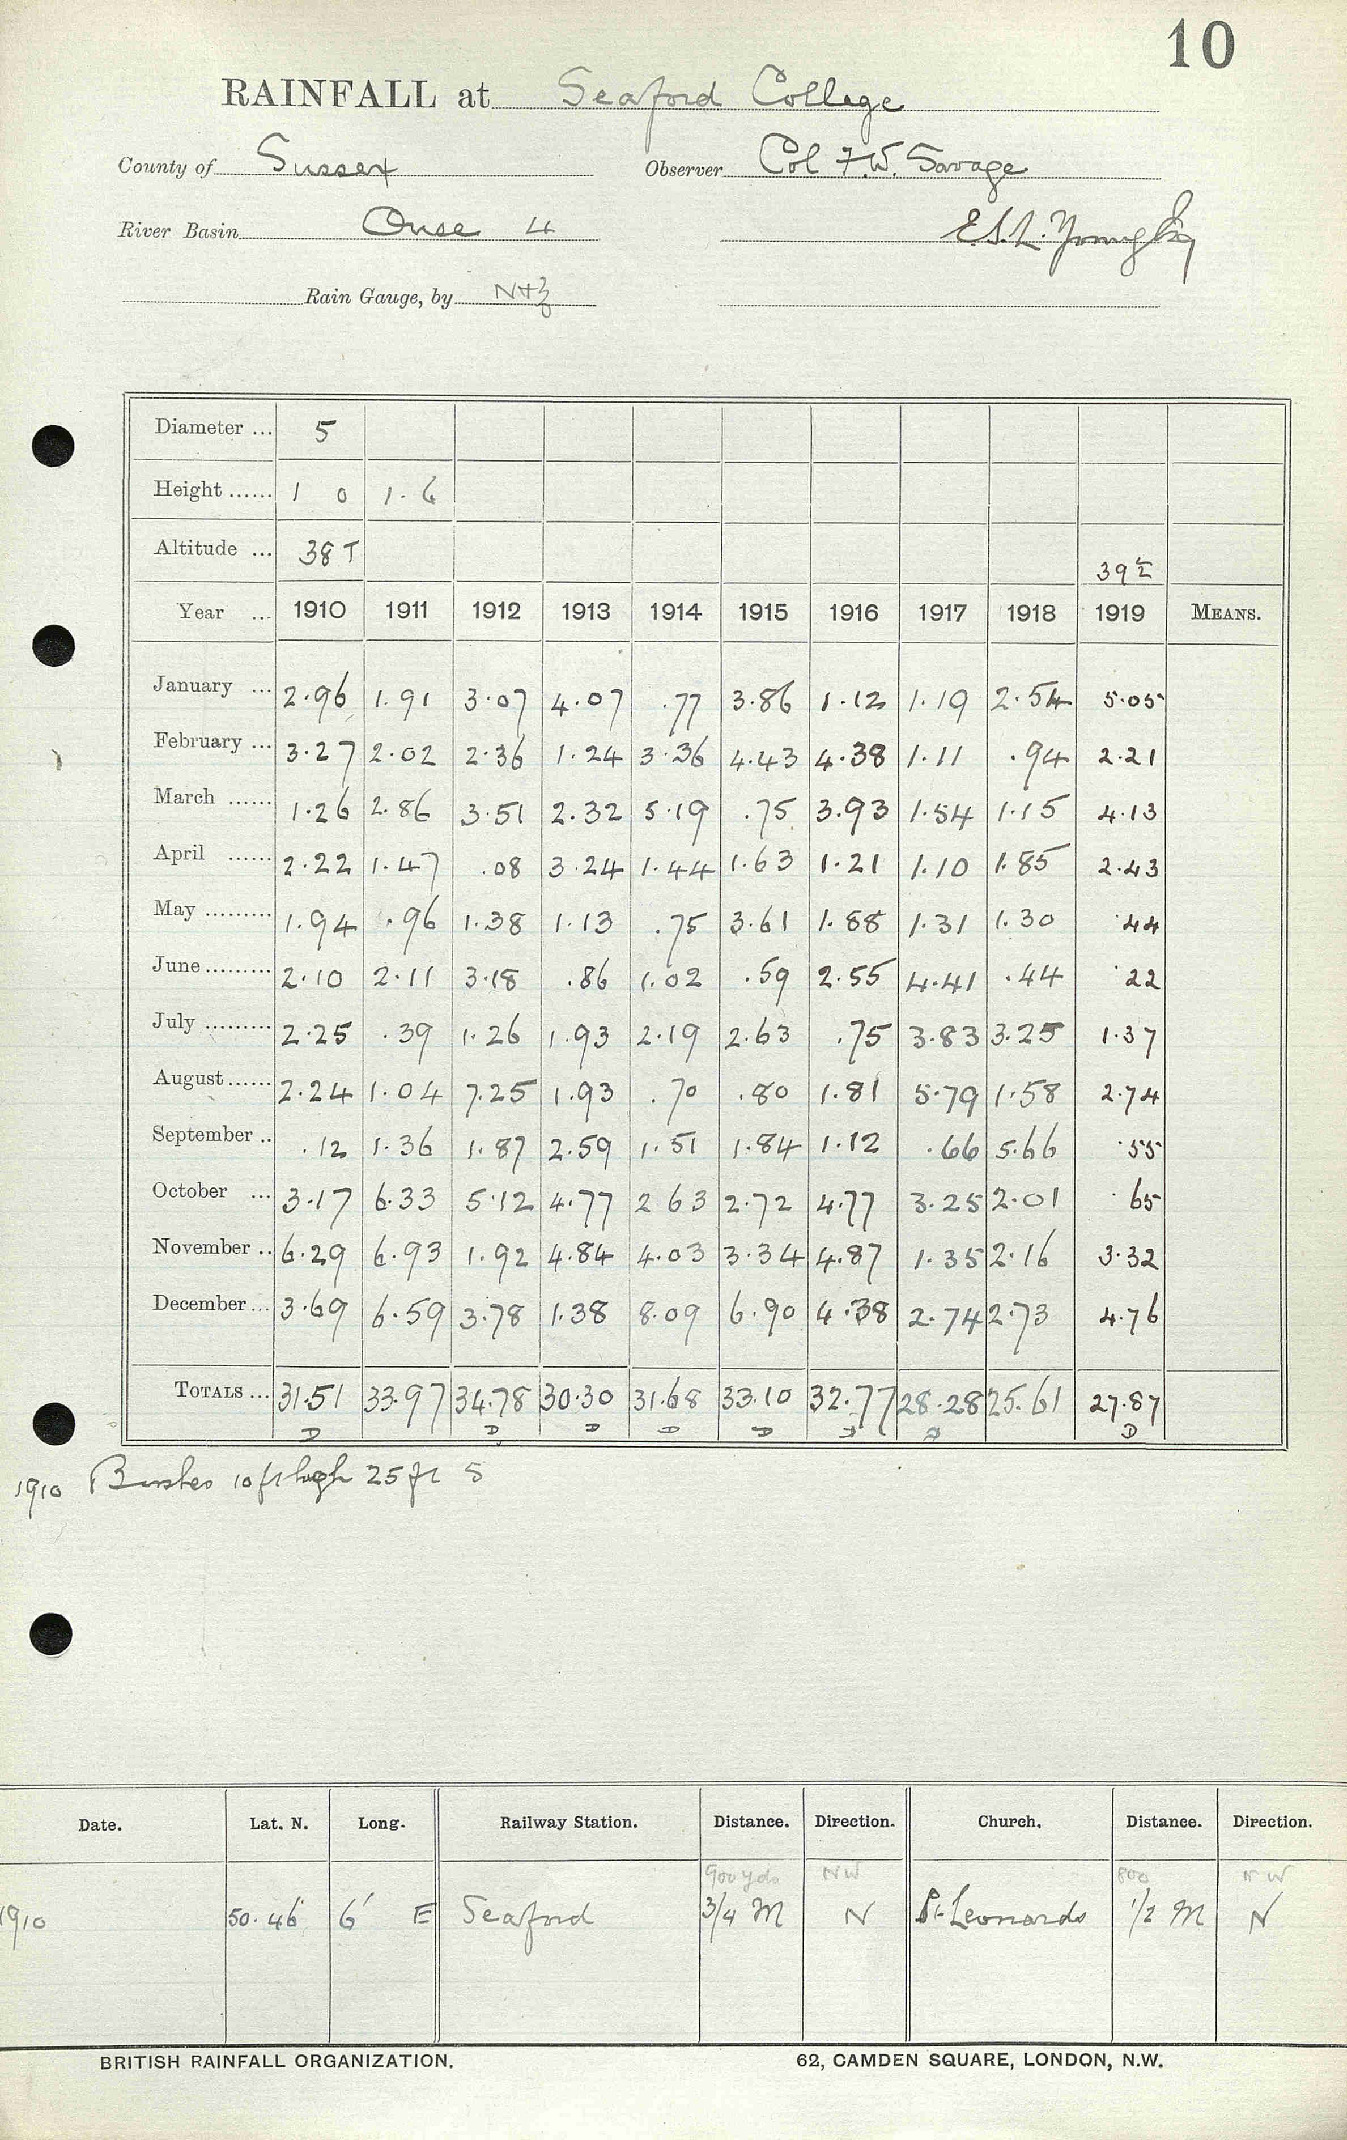 10
RAINFALL at Seaford College
County of Sussex Observer Col F.W. Savage
River Basin Ouse 4 E.S.L. Young Esq
Rain Gauge, by N+Z
Diameter ... 5
Height ...... 1 0 1.6
Altitude ... 38 T 39
Year ... 1910 1911 1912 1913 1914 1915 1916 1917 1918 1919 MEANS.
January ... 2.96 1.91 3.07 4.07 .77 3.86 1.12 1.19 2.54 5.05
February ... 3.27 2.02 2.36 1.24 3.36 4.43 4.38 1.11 .94 2.21
March ...... 1.26 2.86 3.51 2.32 5.19 .75 3.93 1.54 1.15 4.13
April ...... 2.22 1.47 .08 3.24 1.44 1.63 1.21 1.10 1.85 2.43
May ......... 1.94 .96 1.38 1.13 .75 3.61 1.88 1.31 1.30 .44
June ......... 2.10 2.11 3.18 .86 1.02 .59 2.55 4.41 .44 .22
July ......... 2.25 .39 1.26 1.93 2.19 2.63 .75 3.83 3.25 1.37
August ...... 2.24 1.04 7.25 1.93 .70 .80 1.81 5.79 1.58 2.74
September .. .12 1.36 1.87 2.59 1.51 1.84 1.12 .66 5.66 .55
October ... 3.17 6.33 5.12 4.77 2 63 2.72 4.77 3.25 2.01 .65
November .. 6.29 6.93 1.92 4.84 4.03 3.34 4.87 1.35 2.16 3.32
December ... 3.69 6.59 3.78 1.38 8.09 6.90 4.38 2.74 2.73 4.76
TOTALS ... 31.51 33.97 34.78 30.30 31.68 33.10 32.77 28.28 25.61 27.87
D D D D D D D D
1910 Bushes 10 ft high 25 ft S
Date. Lat. N. Long. Railway Station. Distance. Direction. Church. Distance. Direction.
900 yds NW 800 NW
1910 50.46 6' E Seaford 3/4 M N St. Leonards 1/2 M N
BRITISH RAINFALL ORGANIZATION. 62, CAMDEN SQUARE, LONDON, N.W.